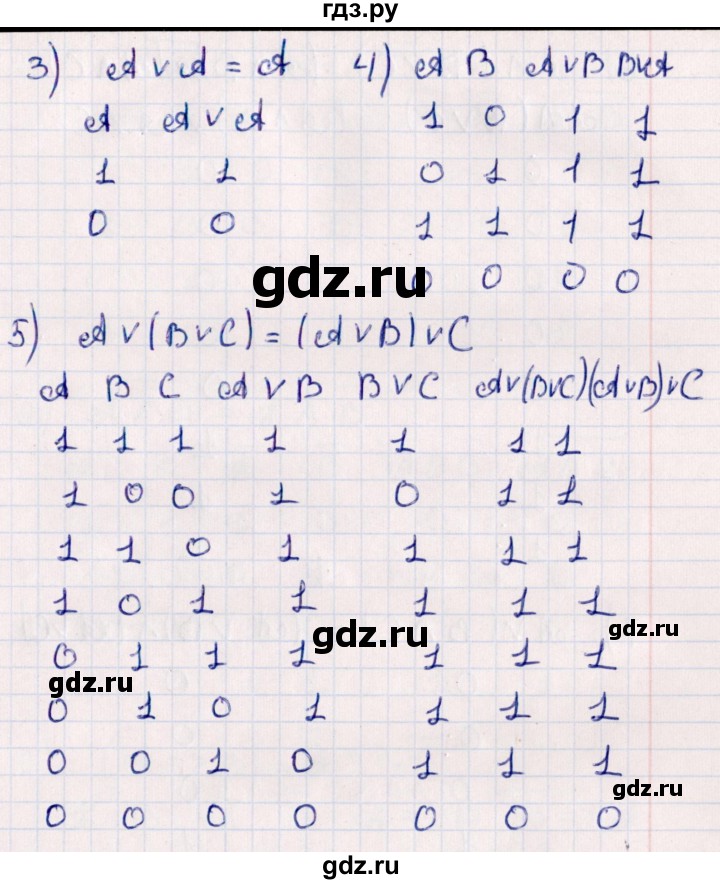 гдз.ру
3) A ∨ A = A 4) A B A∨B B∨A
A A ∨ A 1 0 1 1
1 1 0 1 1 1
0 0 1 1 1 1
gdz.ru
0 0 0 0
5) A ∨ (B ∨ C) = (A ∨ B) ∨ C
A B C A ∨ B B ∨ C A∨(B∨C) (A∨B)∨C
1 1 1 1 1 1 1
1 0 0 1 0 1 1
1 1 0 1 1 1 1
1 0 1 1 1 1 1
gdz.ru
gdz.ru
0 1 1 1 1 1 1
gdz.ru
0 1 0 1 1 1 1
0 0 1 0 1 1 1
gdz.ru
0 0 0 0 0 0 0
gdz.ru